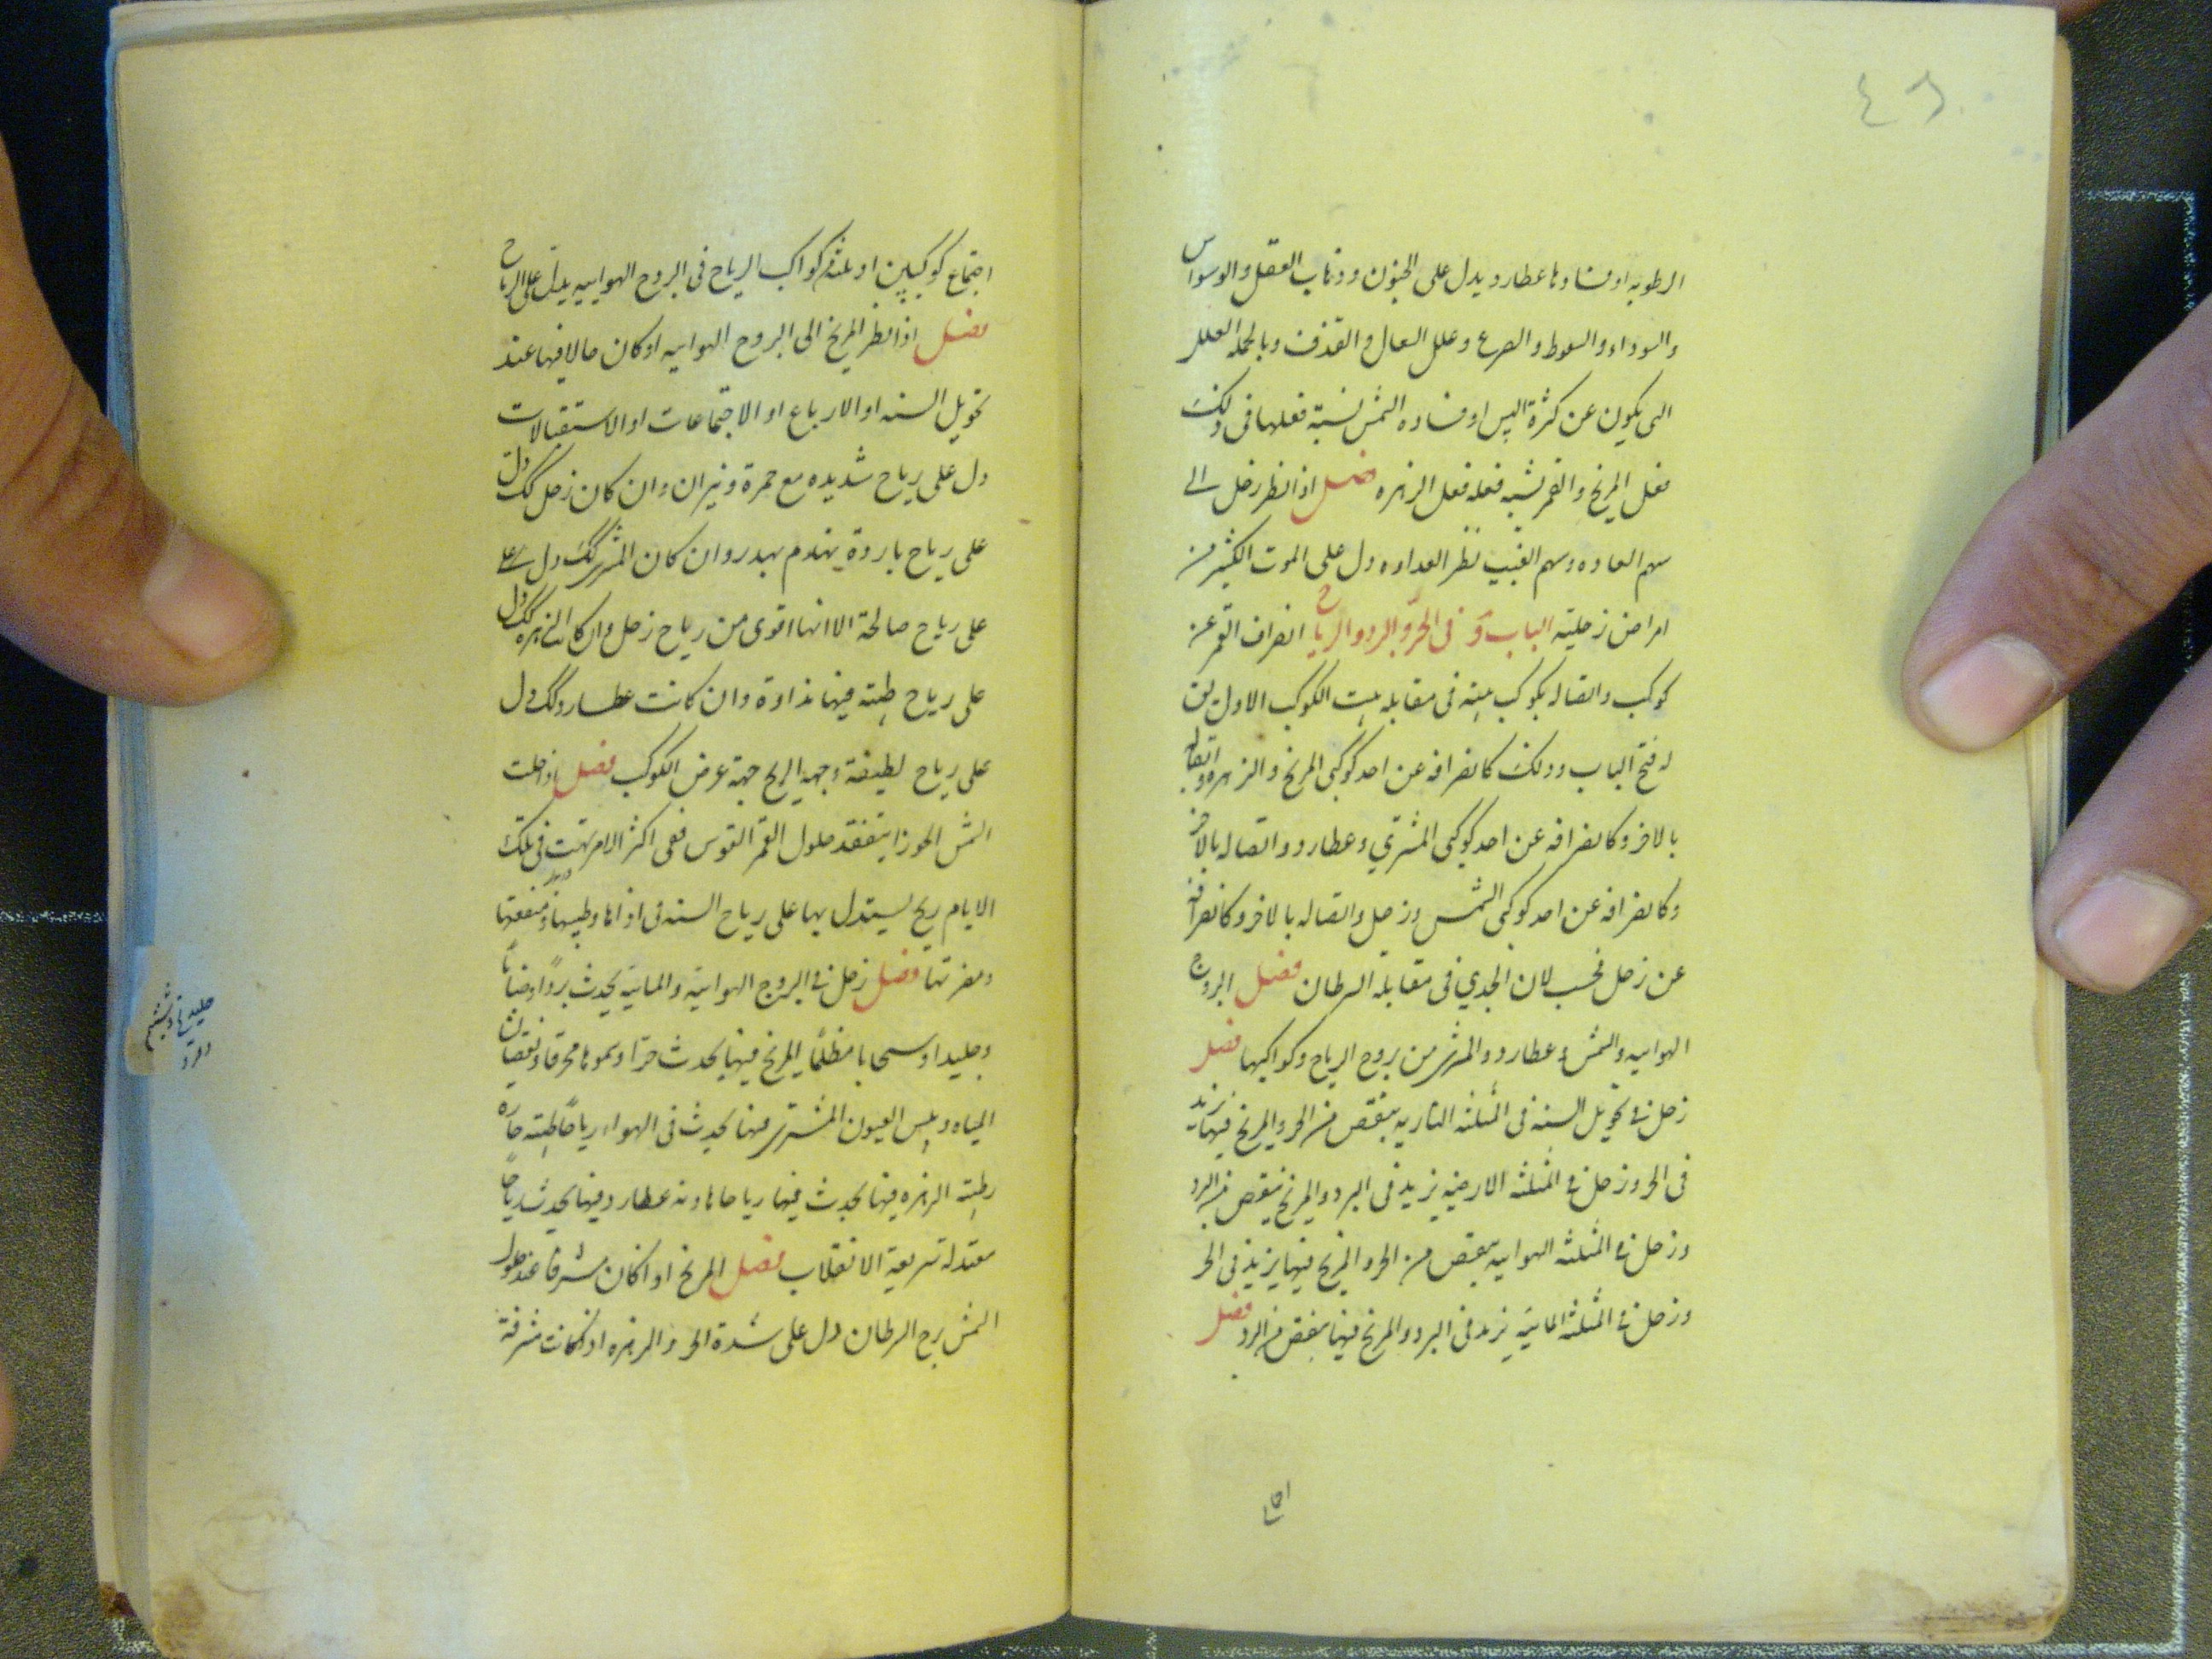 ٤٦
الرطوبه او فسادها عطارد يدل على الجنون وذهاب العقل والوسواس
والسوداء والسعوط والصرع وعلل السعال والقذف وبالجمله العلل
التى يكون عن كثرة اليبس او فساده الشمس نسبة فعلها فى ذلك
فعل المريخ والقمر نسبه فعله فعل الزهره فصل اذا نظر زحل الى
سهم السعاده وسهم الغيب نظر العداوه دل على الموت الكثير من
امراض زحلية الباب و فى الحر والبرد والرياح انصراف القمر عن
كوكب واتصاله بكوكب بيته فى مقابله بيت الكوكب الاول يق
له فتح الباب وذلك كانصرافه عن احد كوكبى المريخ والزهره واتصاله
بالاخر وكانصرافه عن احد كوكبى المشتري وعطارد واتصاله بالاخر
وكانصرافه عن احد كوكبى الشمس وزحل واتصاله بالاخر وكانصرافه
عن زحل فحسب لان الجدي فى مقابلة السرطان فصل البروج
الهوائيه والشمس وعطارد والمشترى من بروج الرياح وكواكبها فصل
زحل فى تحويل السنه فى المثلثه الناريه ينقص من الحر والمريخ فيها يزيد
فى الحر وزحل فى المثلثه الارضيه يزيد فى البرد والمريخ ينقص من البرد
وزحل فى المثلثه الهوائيه ينقص من الحر والمريخ فيها يزيد فى الحر
وزحل فى المثلثه المائية يزيد فى البرد والمريخ فيها ينقص من البرد فصل
اجتماع كوكبين او ثلثه كواكب الرياح فى البروج الهوائيه يدل على الرياح
فصل اذا نظر المريخ الى البروج الهوائيه او كان حالا فيها عند
تحويل السنه او الارباع او الاجتماعات او الاستقبالات
دل على رياح شديده مع حمرة ونيران وان كان زحل كك دل
على رياح باردة يهدم بهدر وان كان المشترى كك دل على
على رياح صالحة الا انها اقوى من رياح زحل وان كان الزهره كك دل
على رياح طيبة فيها نداوة وان كانت عطارد كك دل
على رياح لطيفة وجهة الريح جهة عرض الكوكب فصل اذا حلت
الشمس الجوزا يتفقد حلول القمر القوس ففى اكثر الامر تهب فى تلك
الايام ريح يستدل بها على رياح السنه فى اذاها وطيبها ومنفعتها
ومضرتها فصل زحل فى البروج الهوائية والمائية يحدث بردا وضبابا
وجليدا وسحابا مظلما المريخ فيها يحدث حرا وسموما محرقا ونقصان
المياه ويبس العيون المشترى فيها يحدث فى الهواء رياحا طيبه حاره
رطبه الزهره فيها يحدث فيها رياحا هادئه عطارد فيها يحدث رياحا
معتدلة سريعة الانقلاب فصل المريخ اذا كان مشرقا عند حلول
الشمس برج السرطان دل على شدة الحر والزهره اذا كانت مشرقة